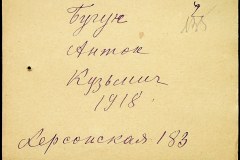 Бугун
Антон
Кузьмич
1918
Херсонская 183